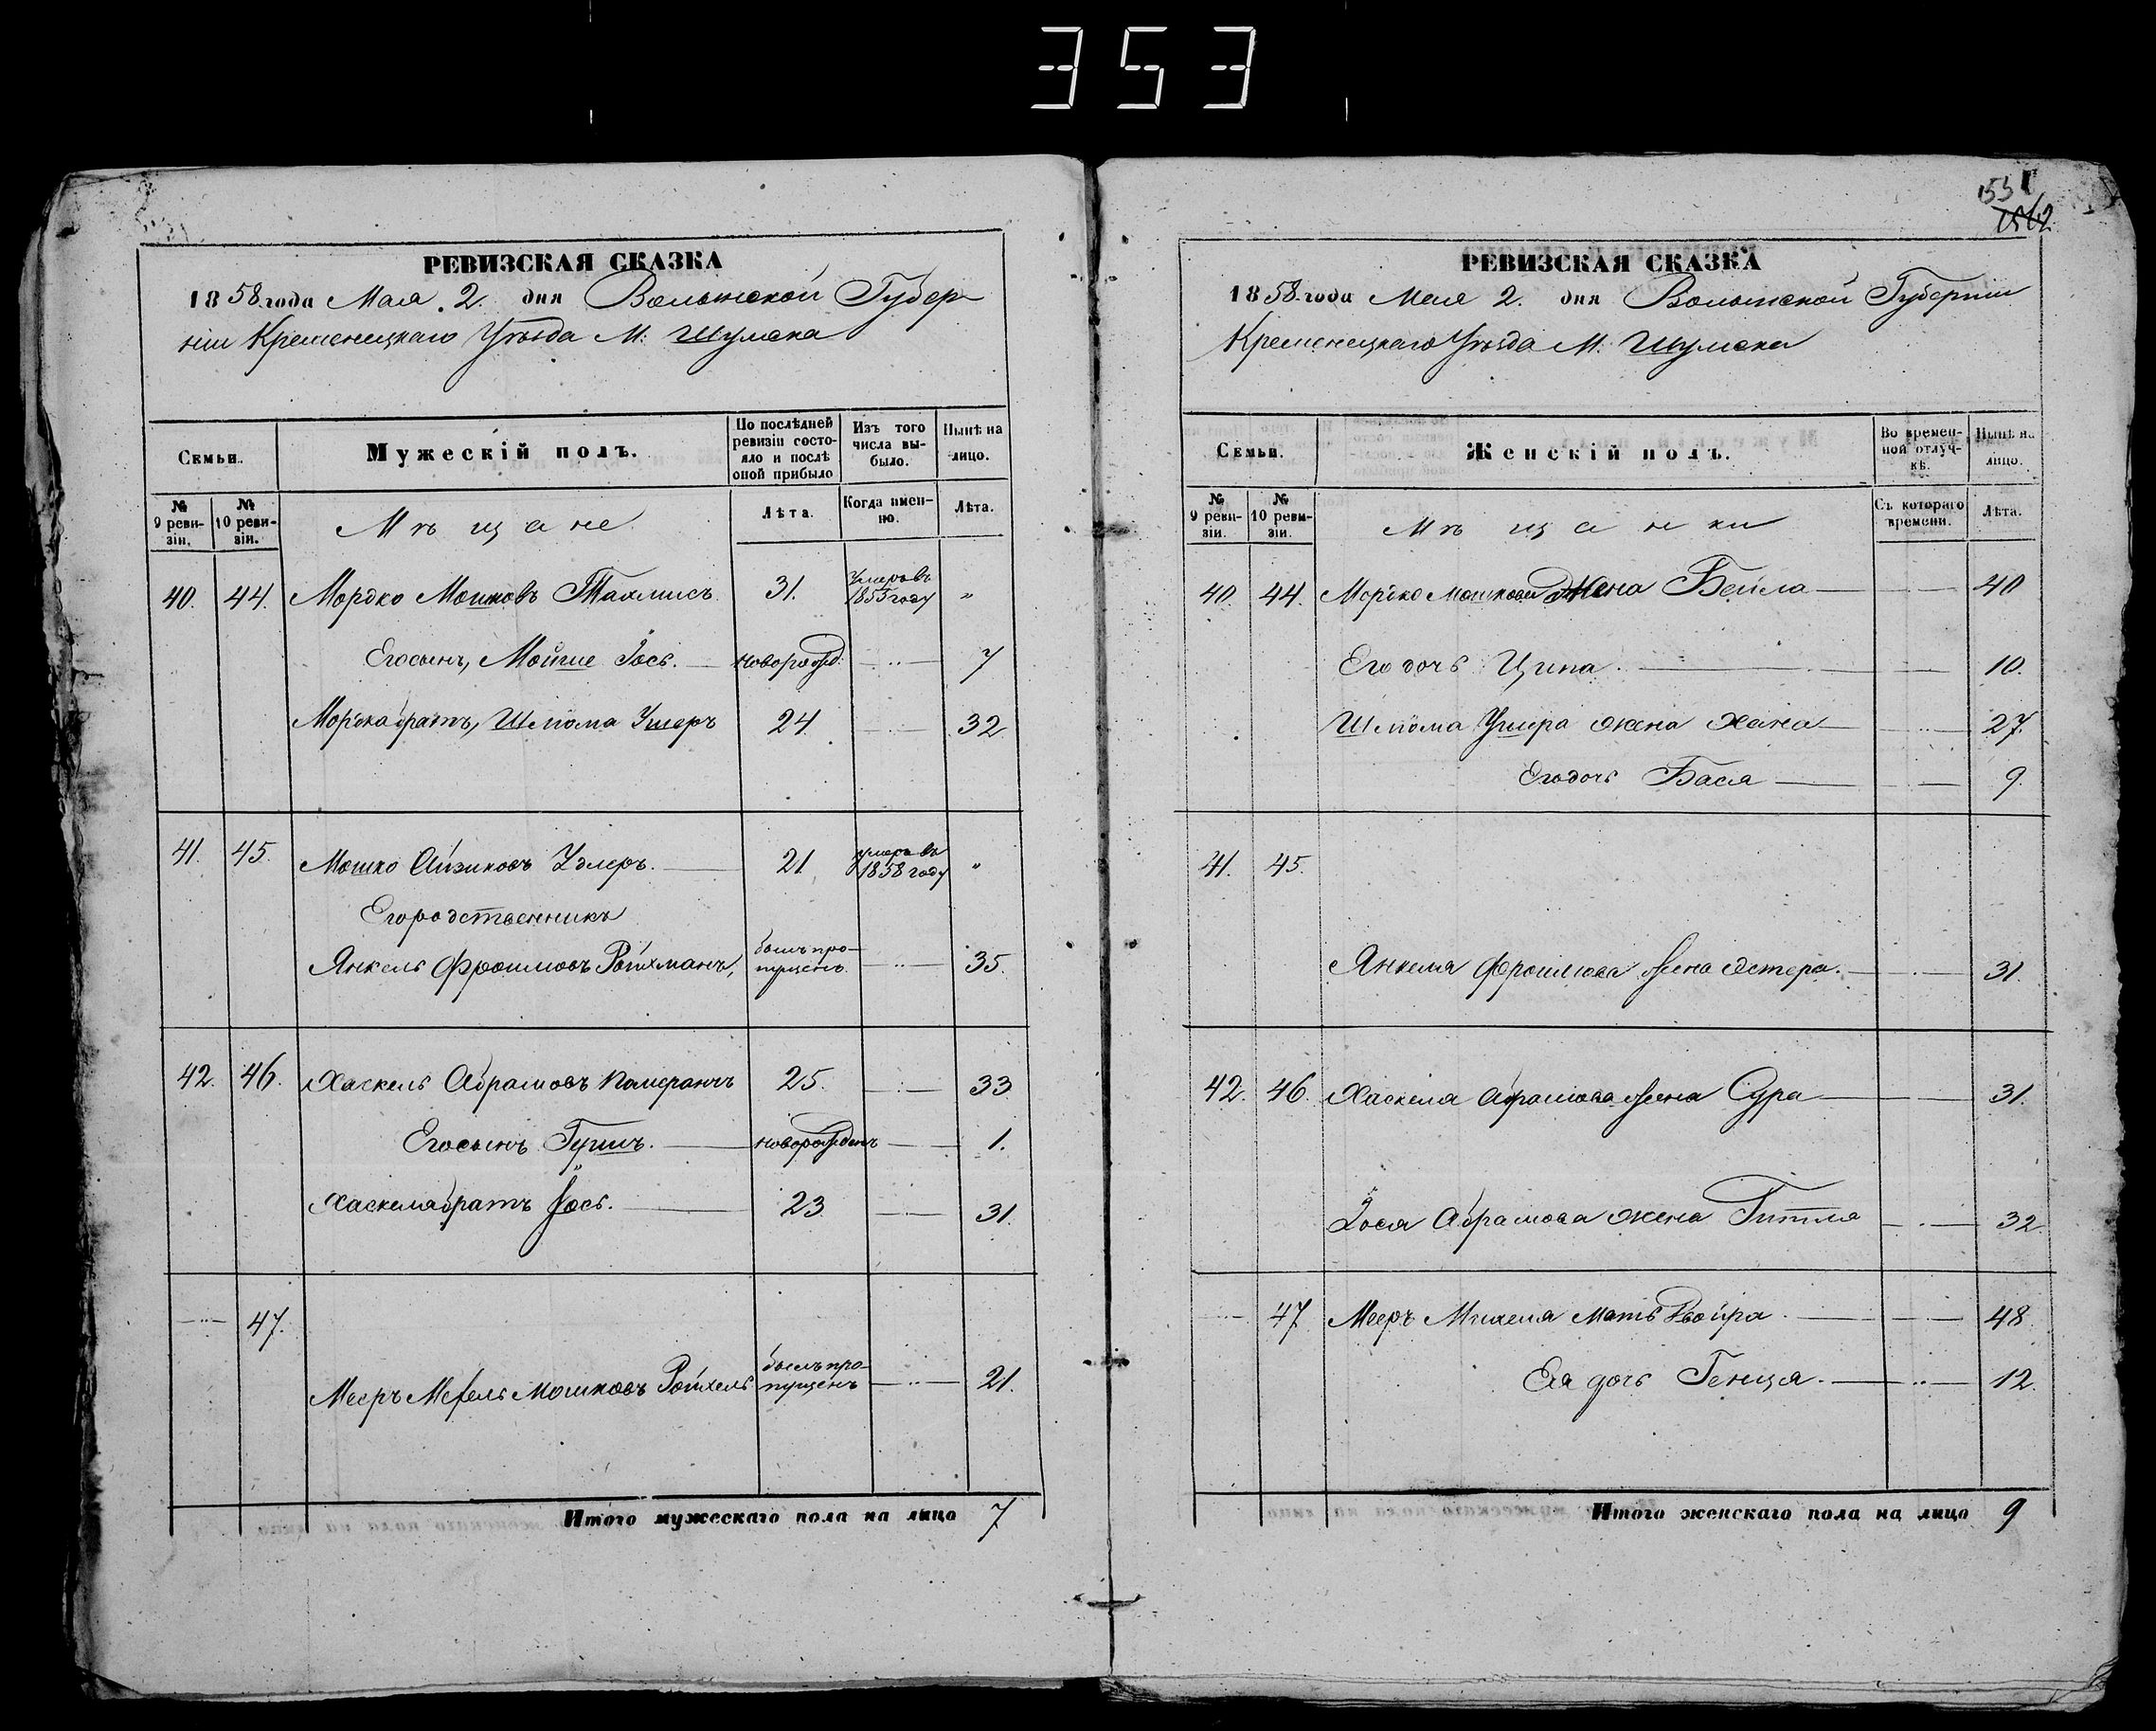 353
РЕВИЗСКАЯ СКАЗКА
1858 года Мая 2. дня Волынской Губер-
ніи Кременецкаго Уѣзда М: Шумска
Семьи.
Мужескій полъ.
По послѣдней ревизіи состояло и послѣ оной прибыло
Изъ того числа вы-было.
Нынѣ на лицо.
№ 9 реви-зіи.
№ 10 реви-зіи.
Мѣщане
Лѣта.
Когда имен-но.
Лѣта.
40. 44. Мордко Мошковъ 31. умеръ въ 1853 году "
Его сынъ, Мойше Іось. новорожд: 7
Мордка братъ, Шлiома Ушеръ 24 32
41. 45. Мошко Айзиковъ 21 умеръ въ 1858 году "
Его родственникъ
Янкель Фроимовъ Ройхманъ, былъ про-пущенъ. 35.
42. 46. Хаскель Абрамовъ Померанчъ 25. 33
Его сынъ Гершъ. новорожденъ 1.
Хаскеля братъ Іось. 23 31.
47. Мееръ Мошковъ Ройхель былъ про-пущенъ 21.
Итого мужескаго пола на лицо 7
1562
РЕВИЗСКАЯ СКАЗКА
1858 года Мая 2. дня Волынской Губерніи
Кременецкаго Уѣзда М. Шумска
Семьи.
Женскій полъ.
Во времен-ной отлуч-кѣ.
Нынѣ на лицо.
№ 9 реви-зіи.
№ 10 реви-зіи.
Мѣщанки
Съ котораго времени.
Лѣта.
40. 44. Мордко Мошкова Жена Бейла 40
Его дочь Ципа. 10.
Шлiома Ушера жена Хана 27.
Его дочь Бася 9.
41. 45.
Янкеля Фроимова жена Эстера. 31.
42. 46. Хаскеля Абрамова жена Сура 31.
Іося Абрамова жена Гитля 32.
47 Мееръ Михеля мать Двойра. 48
Ея дочь Генця. 12.
Итого женскаго пола на лицо 9